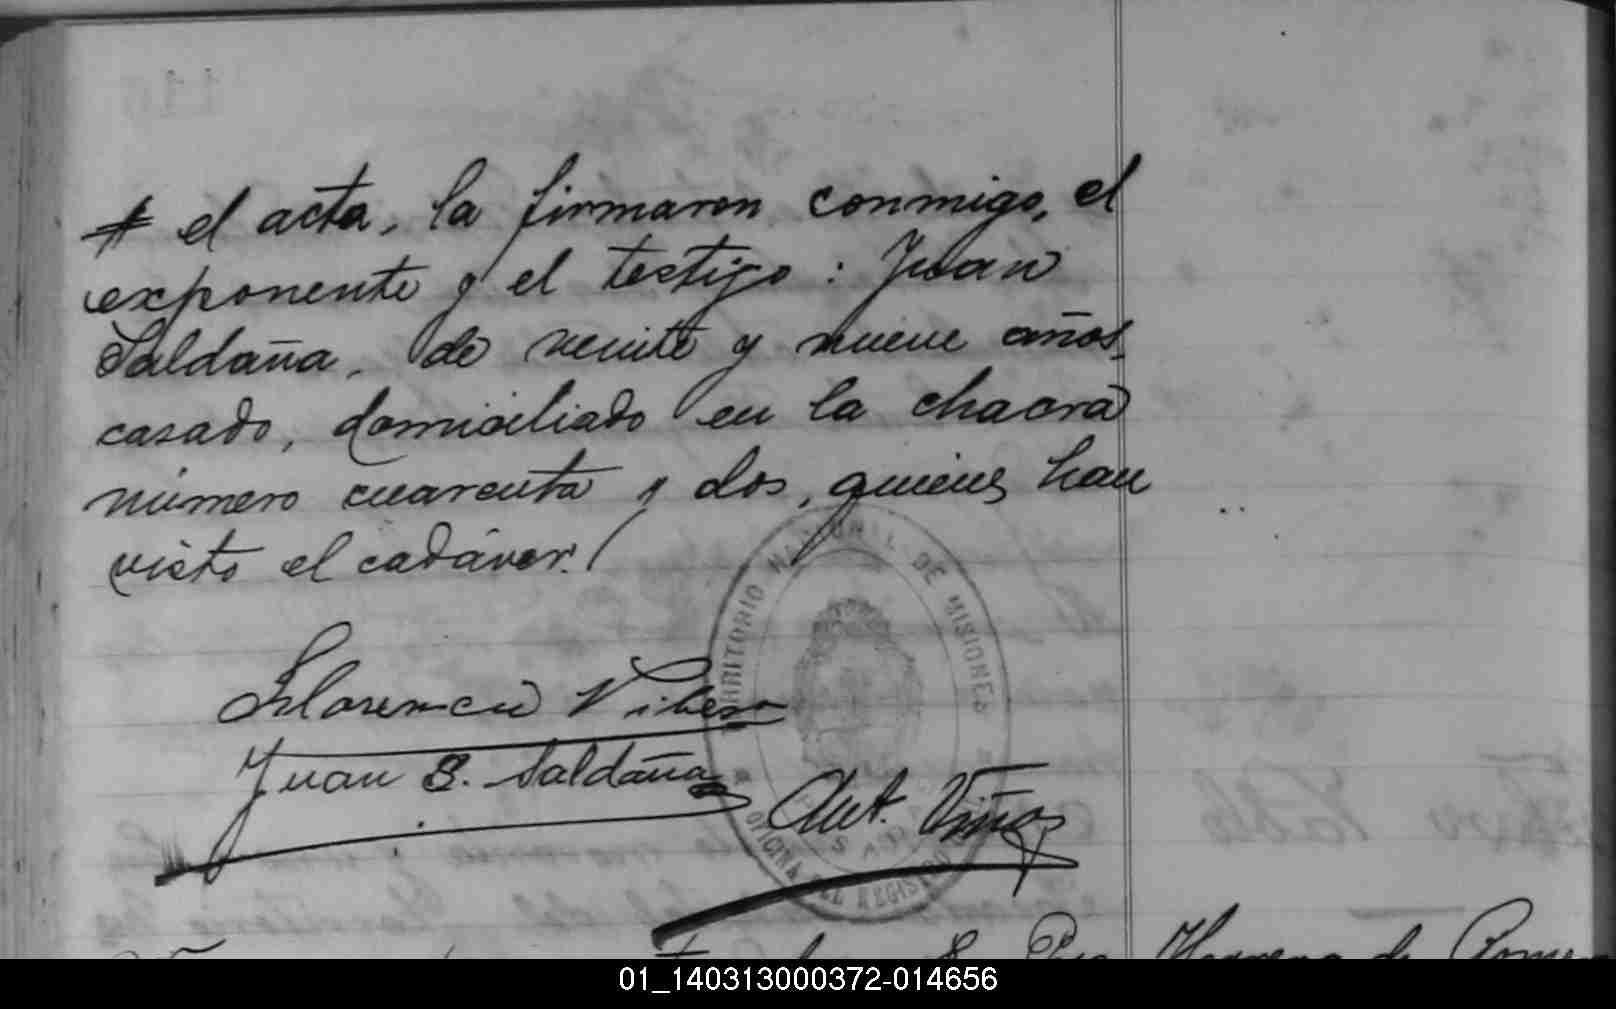 # el acta, la firmaron conmigo, el
exponente y el testigo: Juan
Saldaña, de veinte y nueve años,
casado, domiciliado en la chacra
número cuarenta y dos, quienes han
visto el cadáver./
TERRITORIO NACIONAL DE MISIONES
OFICINA DEL REGISTRO
POSADAS
Florencio
Juan S. Saldaña
Ant. Viñas
01_140313000372-014656